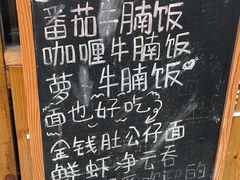 番茄牛腩饭
咖喱牛腩饭
萝卜牛腩饭
面也好吃
金钱肚公仔面
鲜虾净云吞